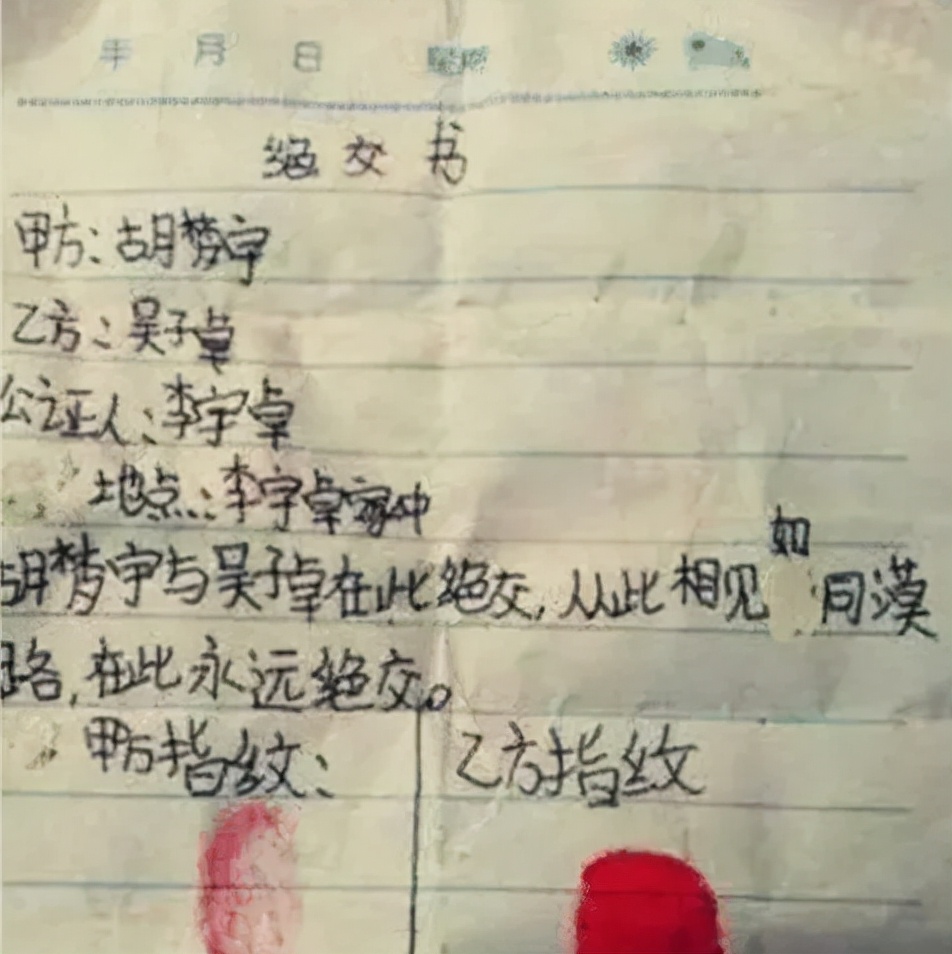 年 月 日
绝交书
甲方:胡梦宇
乙方:吴子卓
公证人:李宇卓
地点:李宇卓家中
胡梦宇与吴子卓在此绝交,从此相见如同漠
路,在此永远绝交。
甲方指纹: 乙方指纹